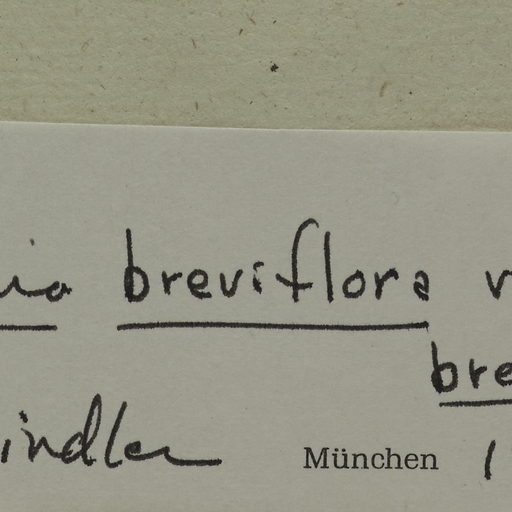 breviflora
bre
indler München 1